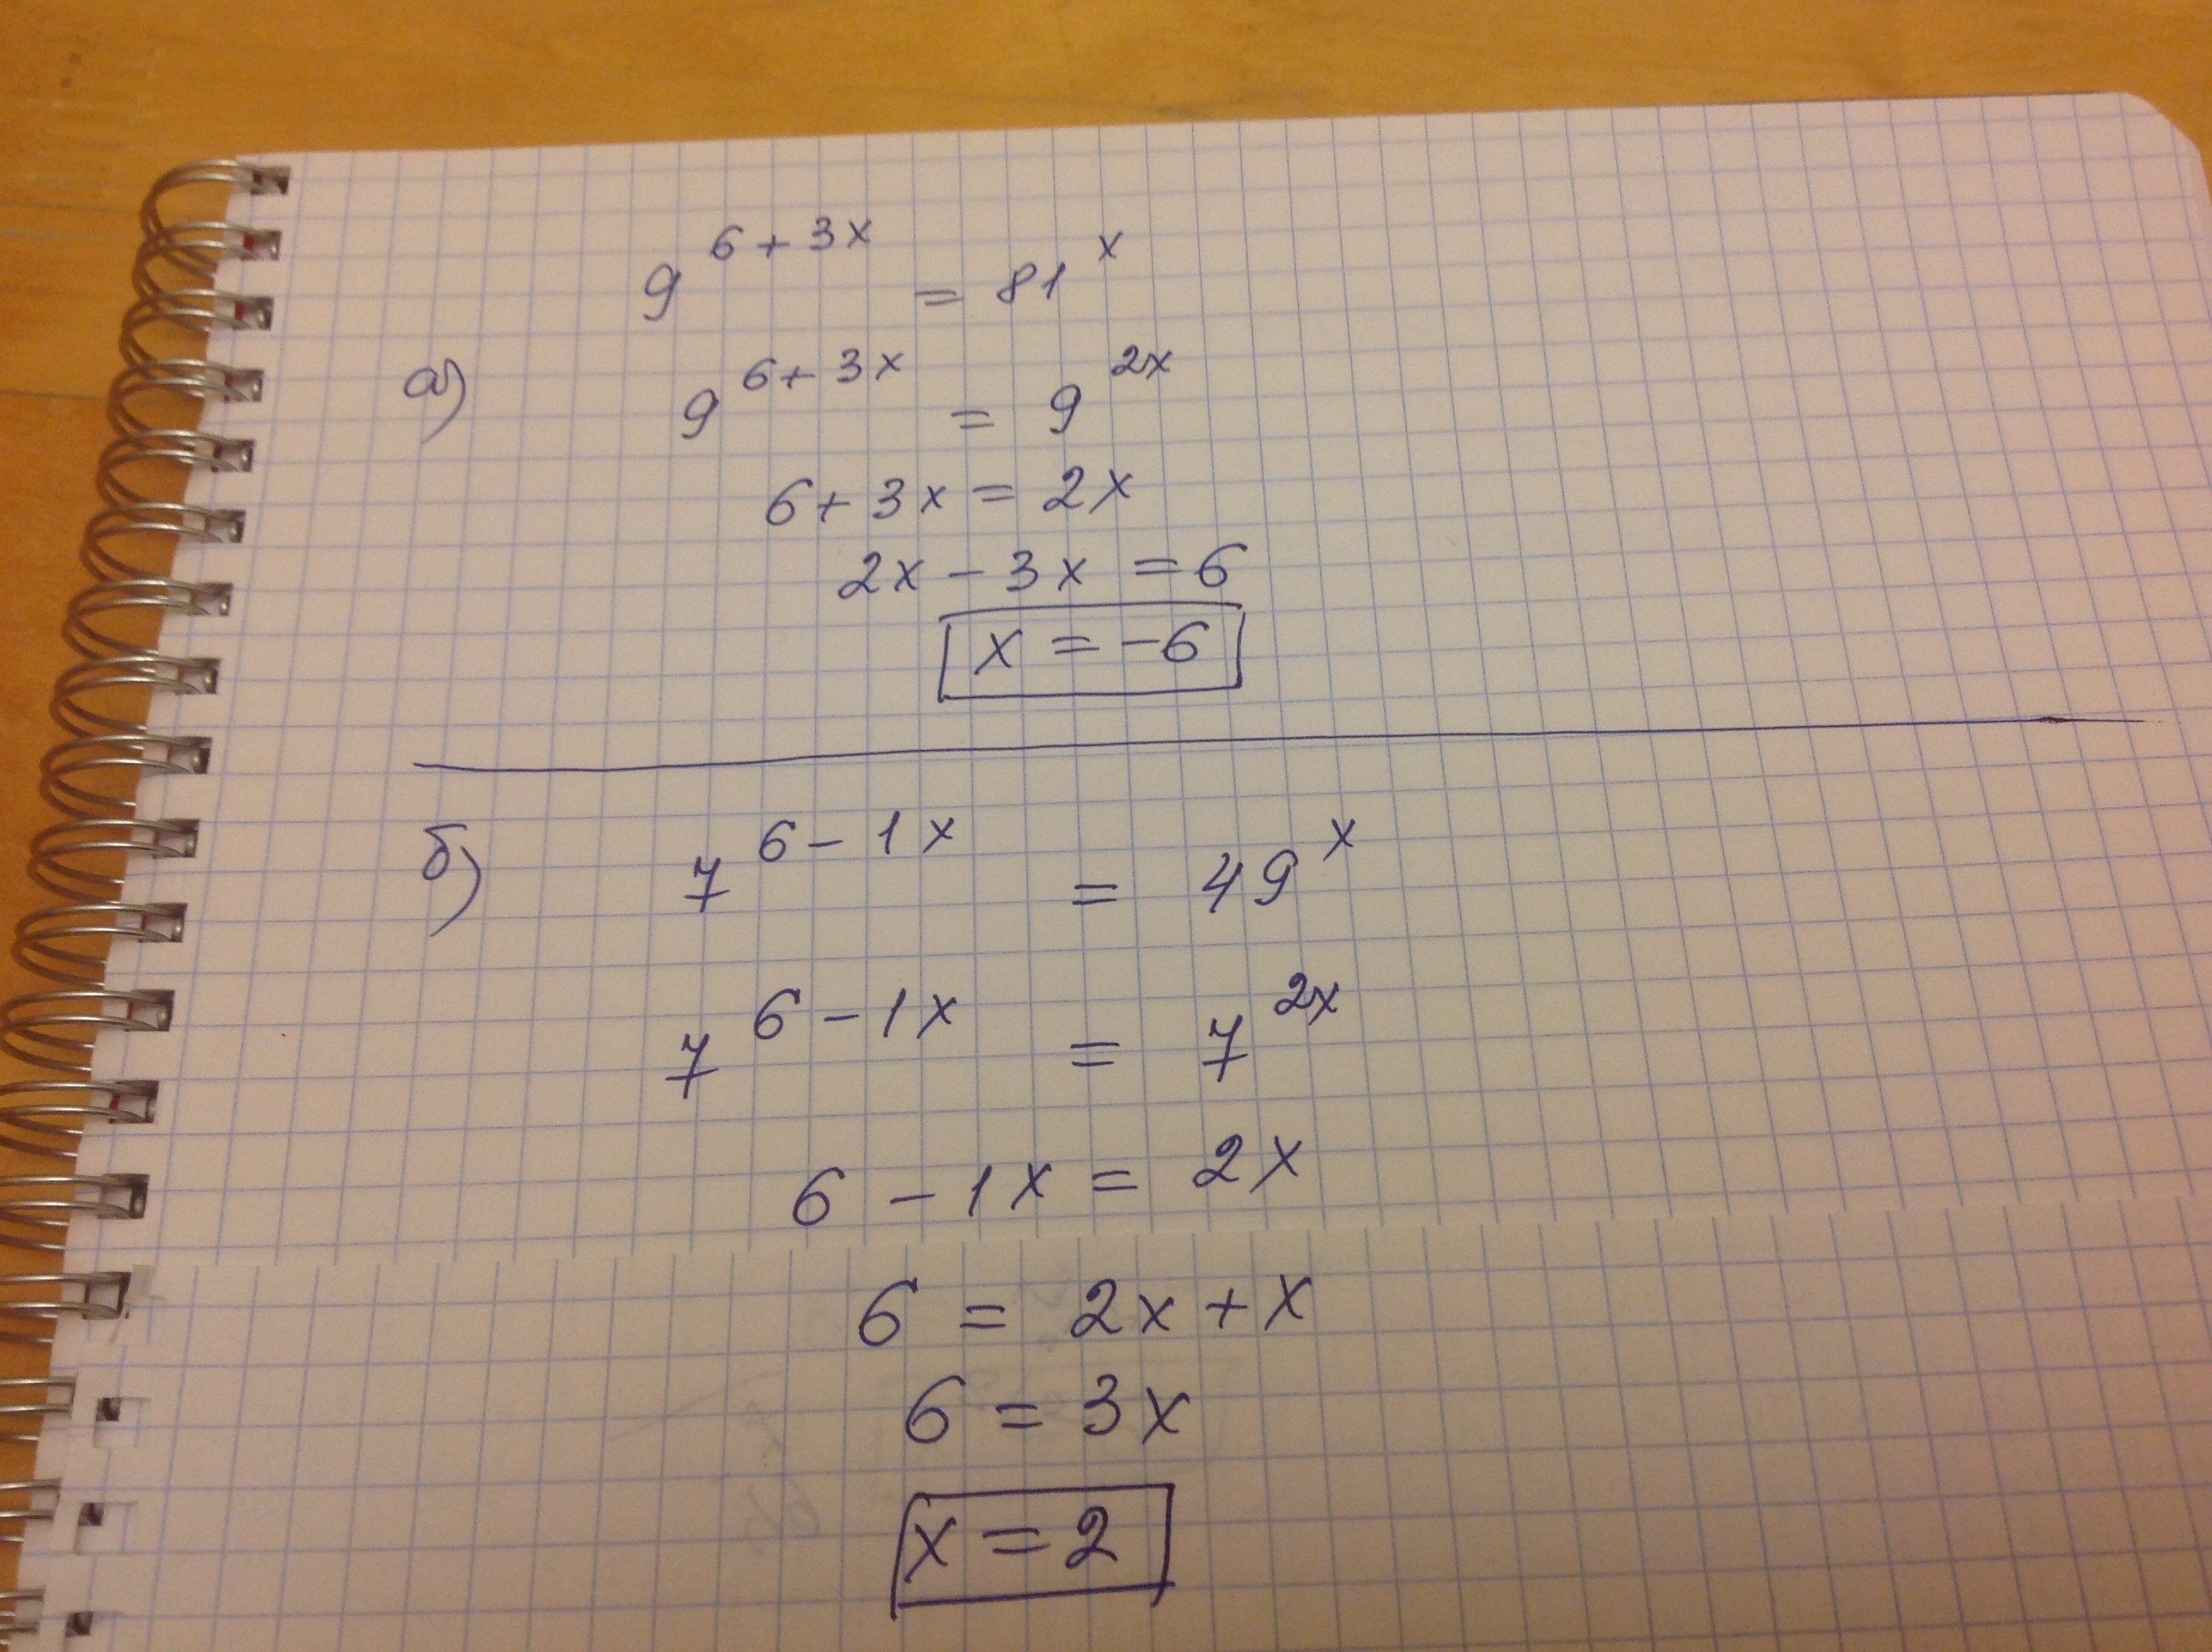 9^(6+3x) = 81^x
а) 9^(6+3x) = 9^(2x)
6+3x = 2x
2x - 3x = 6
x = -6
б) 7^(6-1x) = 49^x
7^(6-1x) = 7^(2x)
6 - 1x = 2x
6 = 2x + x
6 = 3x
x = 2